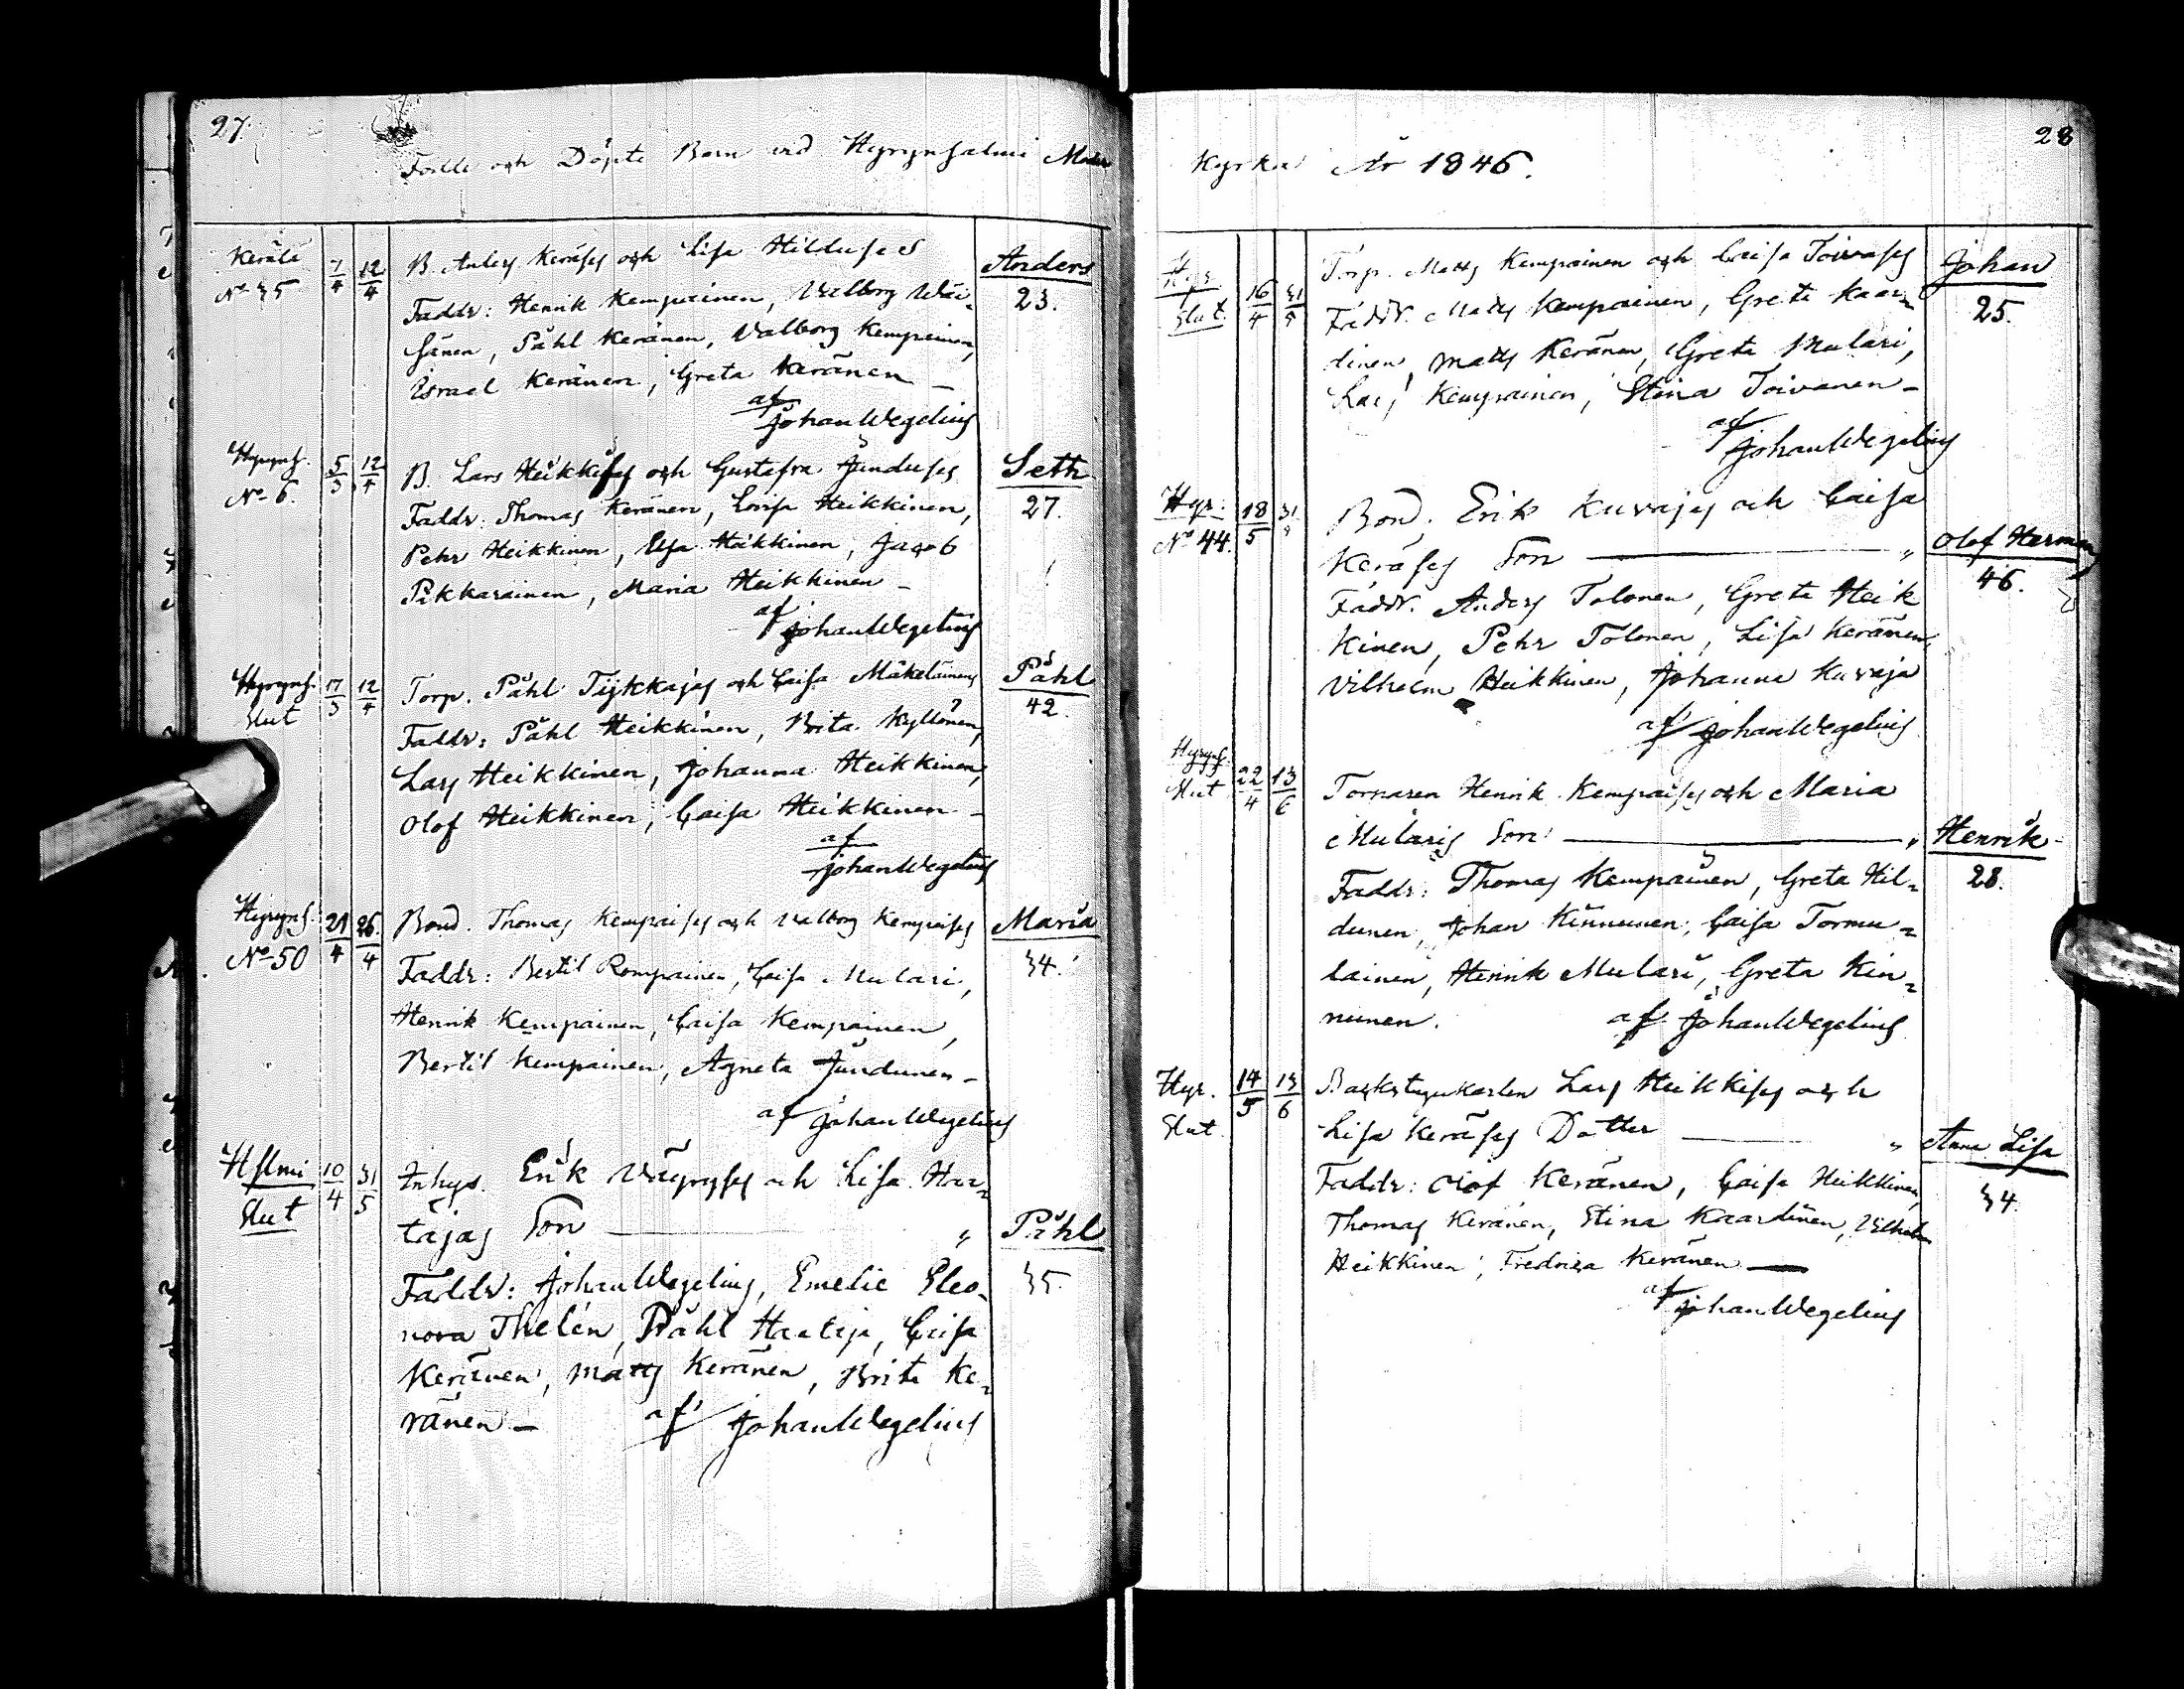 27
Födde och Döpte Barn vid Hyrynsalmi Moder
Kerälä
No 35
7/4
12/4
B. Anders Keräses och Lisa Hilduses
Anders
23.
Faddr: Henrik Kempainen, Walborg Wäi-
sänen, Påhl Keränen, Valborg Kempainen,
Israel Keränen, Greta Keränen –
af
Johan Wegelius
Hyryns.
No 6.
5/3
12/4
B. Lars Heikkises och Gustafva Junduses
Seth
27.
Faddr: Thomas Keränen, Lovisa Heikkinen,
Pehr Heikkinen, Elsa Heikkinen, Jacob
Pikkarainen, Maria Heikkinen –
af
Johan Wegelius
Hyryns.
Slut
17/3
12/4
Torp. Påhl Tykkäjäs och Caisa Mäkeläinens
Påhl
42.
Faddr: Påhl Heikkinen, Brita Kyllönen,
Lars Heikkinen, Johanna Heikkinen,
Olof Heikkinen, Caisa Heikkinen –
af
Johan Wegelius
Hyryns.
No 50
21/4
26./4
Bond. Thomas Kempaises och Valborg Kempaises
Maria
34.
Faddr: Bertil Rompainen, Caisa Mulari,
Henrik Kempainen, Caisa Kempainen,
Bertil Kempainen, Agneta Jundunen –
af Johan Wegelius
Hslmi
Slut
10/4
31/5
Inhys. Erik Väyryses och Lisa Haa-
tajas Son — "
Påhl
35.
Faddr: Johan Wegelius, Emelie Eleo-
nora Thelén, Påhl Haataja, Caisa
Keränen, Matts Keränen, Brita Ke-
ränen – af Johan Wegelius
28
Kyrka År 1846.
Hyr.
Slut.
16/4
31/5
Torp. Matts Kempainen och Caisa Toivases
Johan
25.
Faddr. Matts Kempainen, Greta Kaar-
dinen, Matts Keränen, Greta Mulari,
Lars Kempainen, Stina Toivanen –
af
Johan Wegelius
Hyr.
No 44.
18/5
31/5
Bond. Erik Kuvajas och Caisa
Keräses Son — "
Olof Herman
46.
Faddr. Anders Tolonen, Greta Heik
kinen, Pehr Tolonen, Lisa Keränen,
Vilhelm Heikkinen, Johanna Kuvaja
af Johan Wegelius
Hyryns.
Slut
22/4
13/6
Torparen Henrik Kempaises och Maria
Mularis Son — "
Henrik
28.
Faddr: Thomas Kempainen, Greta Hil-
dunen, Johan Kinnunen, Caisa Tormu-
lainen, Henrik Mulari, Greta Kin-
nunen. af Johan Wegelius
Hyr.
Slut.
14/5
13/6
Backstugukarlen Lars Heikkises och
Lisa Keräses Dotter — "
Anna Lisa
34.
Faddr: Olof Keränen, Caisa Heikkinen,
Thomas Keränen, Stina Kaardinen, Vilhelm
Heikkinen, Fredrica Keränen —
af
Johan Wegelius